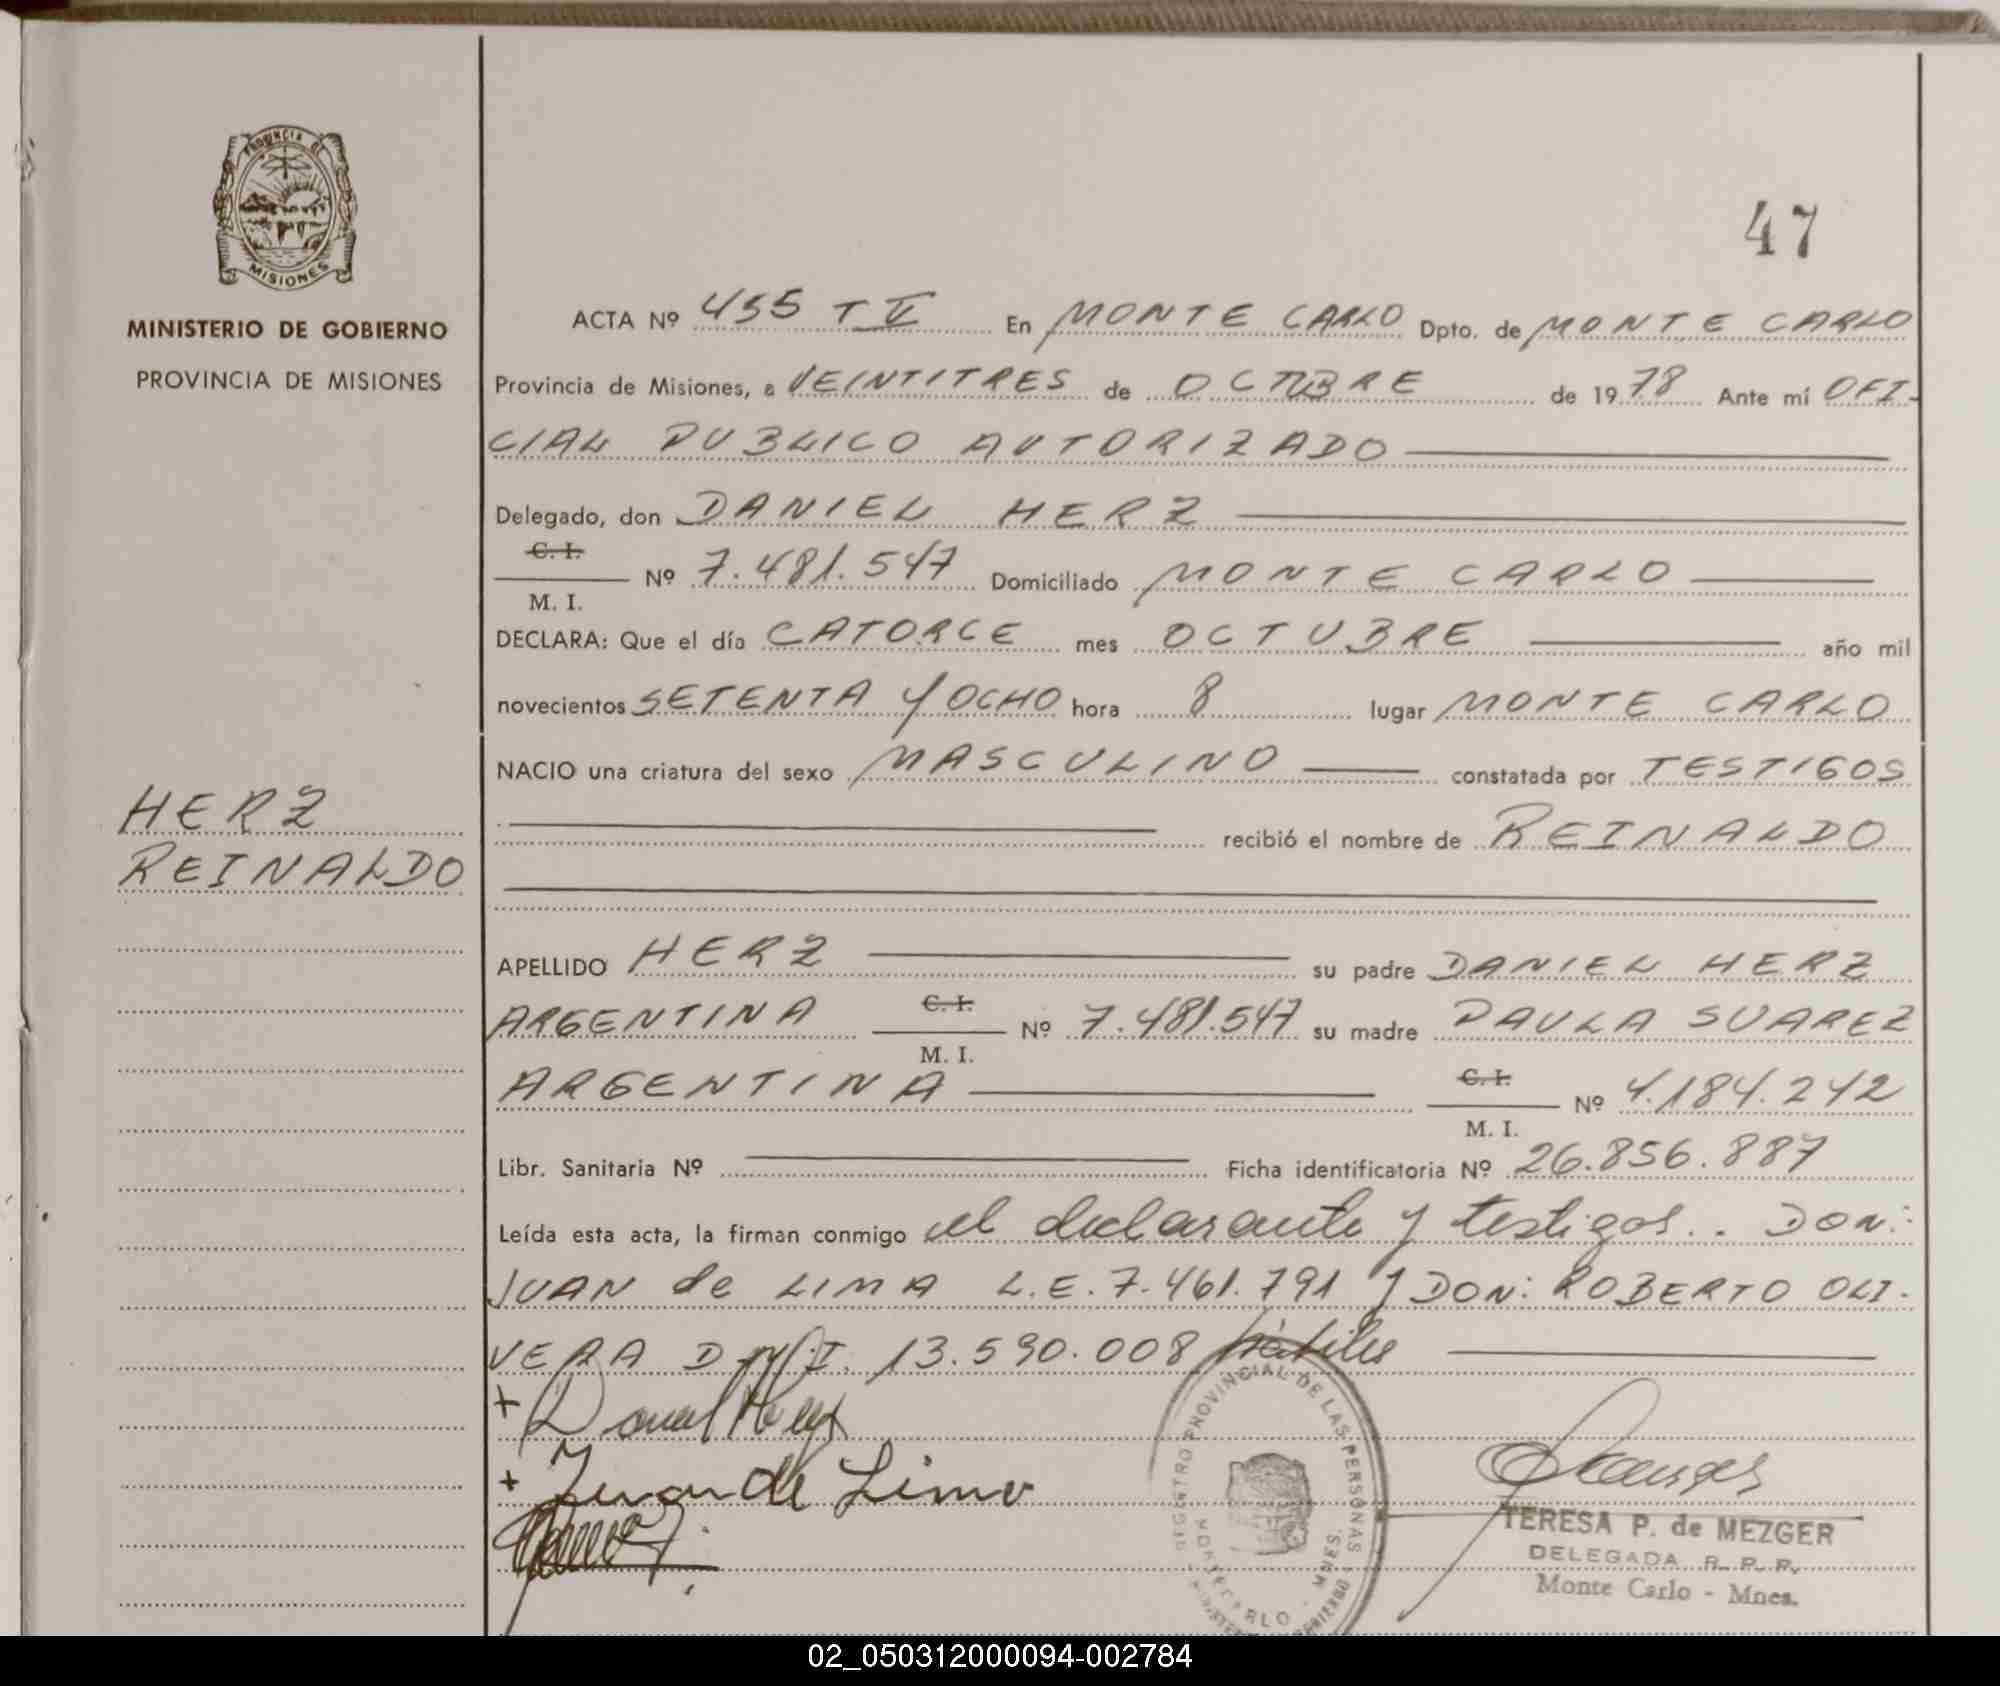 PROVINCIA DE
MISIONES
MINISTERIO DE GOBIERNO
PROVINCIA DE MISIONES
HERZ
REINALDO
47
ACTA Nº 455 T V En MONTE CARLO Dpto. de MONTE CARLO
Provincia de Misiones, a VEINTITRES de OCTUBRE de 1978 Ante mí OFI-
CIAL PUBLICO AUTORIZADO
Delegado, don DANIEL HERZ
C. I.
Nº 7.481.547 Domiciliado MONTE CARLO
M. I.
DECLARA: Que el día CATORCE mes OCTUBRE año mil
novecientos SETENTA Y OCHO hora 8 lugar MONTE CARLO
NACIO una criatura del sexo MASCULINO constatada por TESTIGOS
recibió el nombre de REINALDO
APELLIDO HERZ su padre DANIEL HERZ
ARGENTINA C. I. Nº 7.481.547 su madre PAULA SUAREZ
M. I.
ARGENTINA C. I. Nº 4.184.242
M. I.
Libr. Sanitaria Nº Ficha identificatoria Nº 26.856.887
Leída esta acta, la firman conmigo el declarante y testigos.. DON:
JUAN de LIMA L.E. 7.461.791 y DON: ROBERTO OLI-
VERA D.N.I. 13.590.008 hábiles
+ Daniel Herz
+ Juan de Lima
REGISTRO PROVINCIAL DE LAS PERSONAS
MONTECARLO - MNES.
TERESA P. de MEZGER
DELEGADA R. P. P.
Monte Carlo - Mnes.
02_050312000094-002784